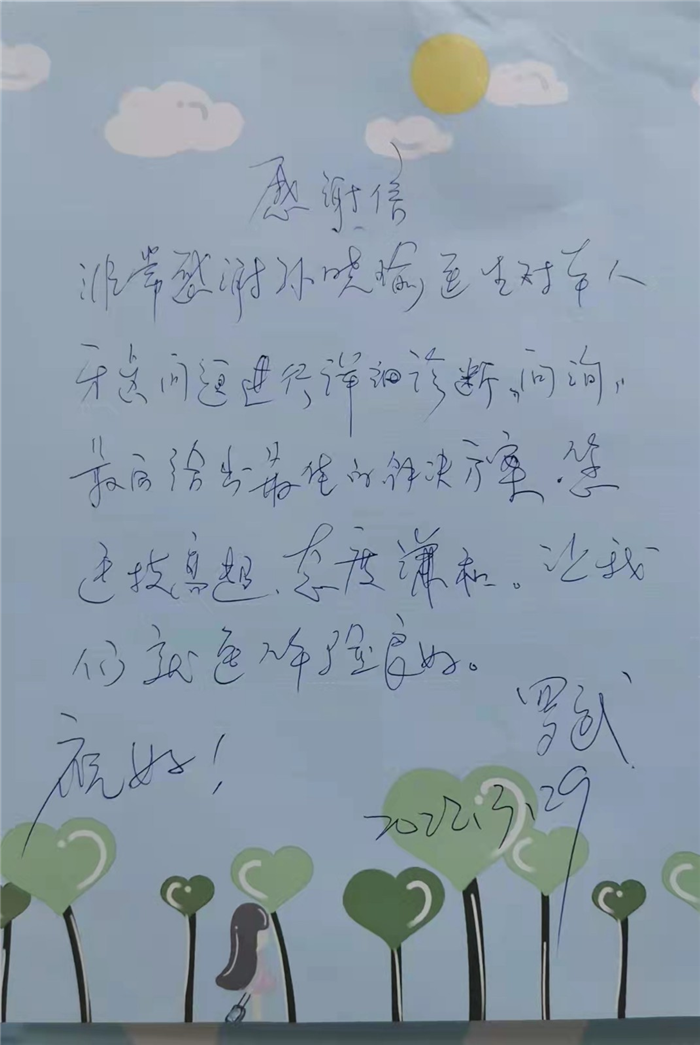 感谢信
非常感谢孙晓瑜医生对本人
牙齿问题进行详细诊断，问询，
最后给出最佳的解决方案。您
医技高超、态度谦和。让我
们就医体验良好。
罗武
祝好！
2022.3.29